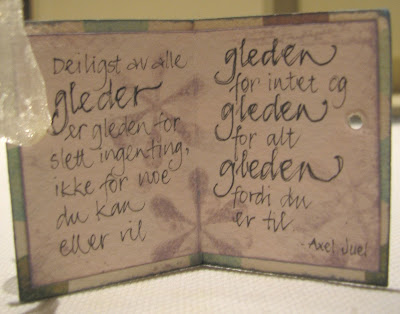 Deiligst av alle
gleder
er gleden for
slett ingenting,
ikke for noe
du kan
eller vil
gleden
for intet og
gleden
for alt
gleden
fordi du
er til
- Axel Juel